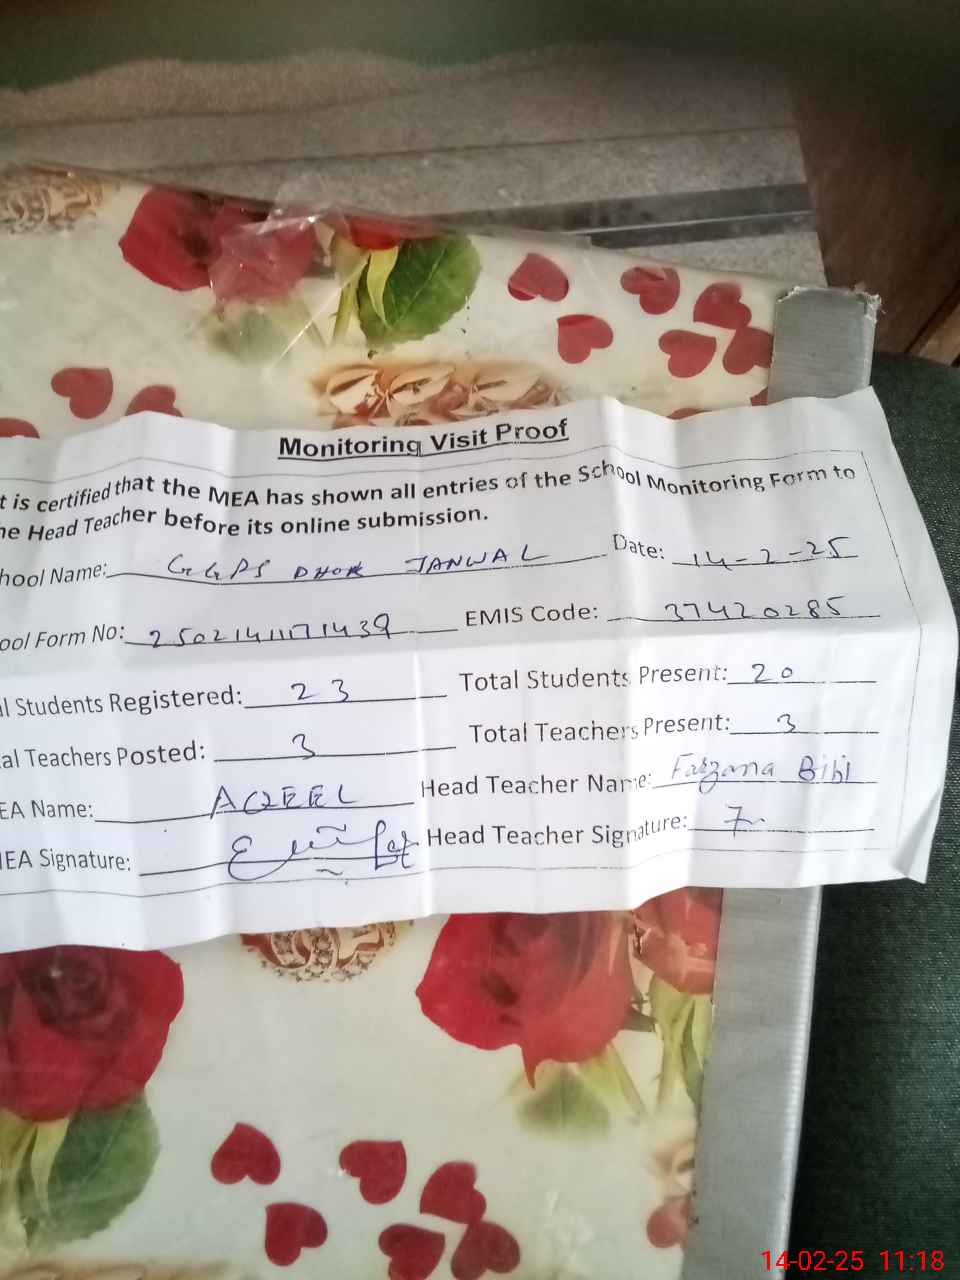 Monitoring Visit Proof
t is certified that the MEA has shown all entries of the School Monitoring Form to
he Head Teacher before its online submission.
hool Name: GGPS DHOK JANWAL Date: 14-2-25
ool Form No: 2502141171439 EMIS Code: 37420285
l Students Registered: 23 Total Students Present: 20
al Teachers Posted: 3 Total Teachers Present: 3
EA Name: AQEEL Head Teacher Name: Farzana Bibi
IEA Signature: Head Teacher Signature:
14-02-25 11:18